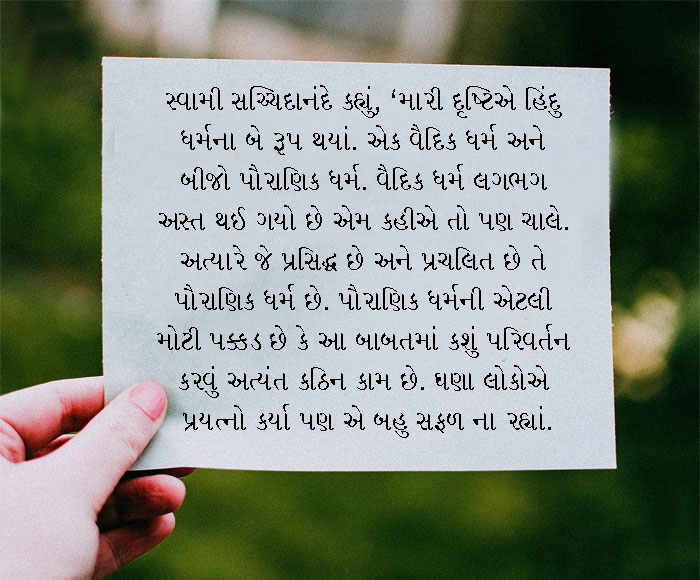 સ્વામી સચ્ચિદાનંદે કહ્યું, ‘મારી દૃષ્ટિએ હિંદુ
ધર્મના બે રૂપ થયાં. એક વૈદિક ધર્મ અને
બીજો પૌરાણિક ધર્મ. વૈદિક ધર્મ લગભગ
અસ્ત થઈ ગયો છે એમ કહીએ તો પણ ચાલે.
અત્યારે જે પ્રસિદ્ધ છે અને પ્રચલિત છે તે
પૌરાણિક ધર્મ છે. પૌરાણિક ધર્મની એટલી
મોટી પક્કડ છે કે આ બાબતમાં કશું પરિવર્તન
કરવું અત્યંત કઠિન કામ છે. ઘણા લોકોએ
પ્રયત્નો કર્યા પણ એ બહુ સફળ ના રહ્યાં.